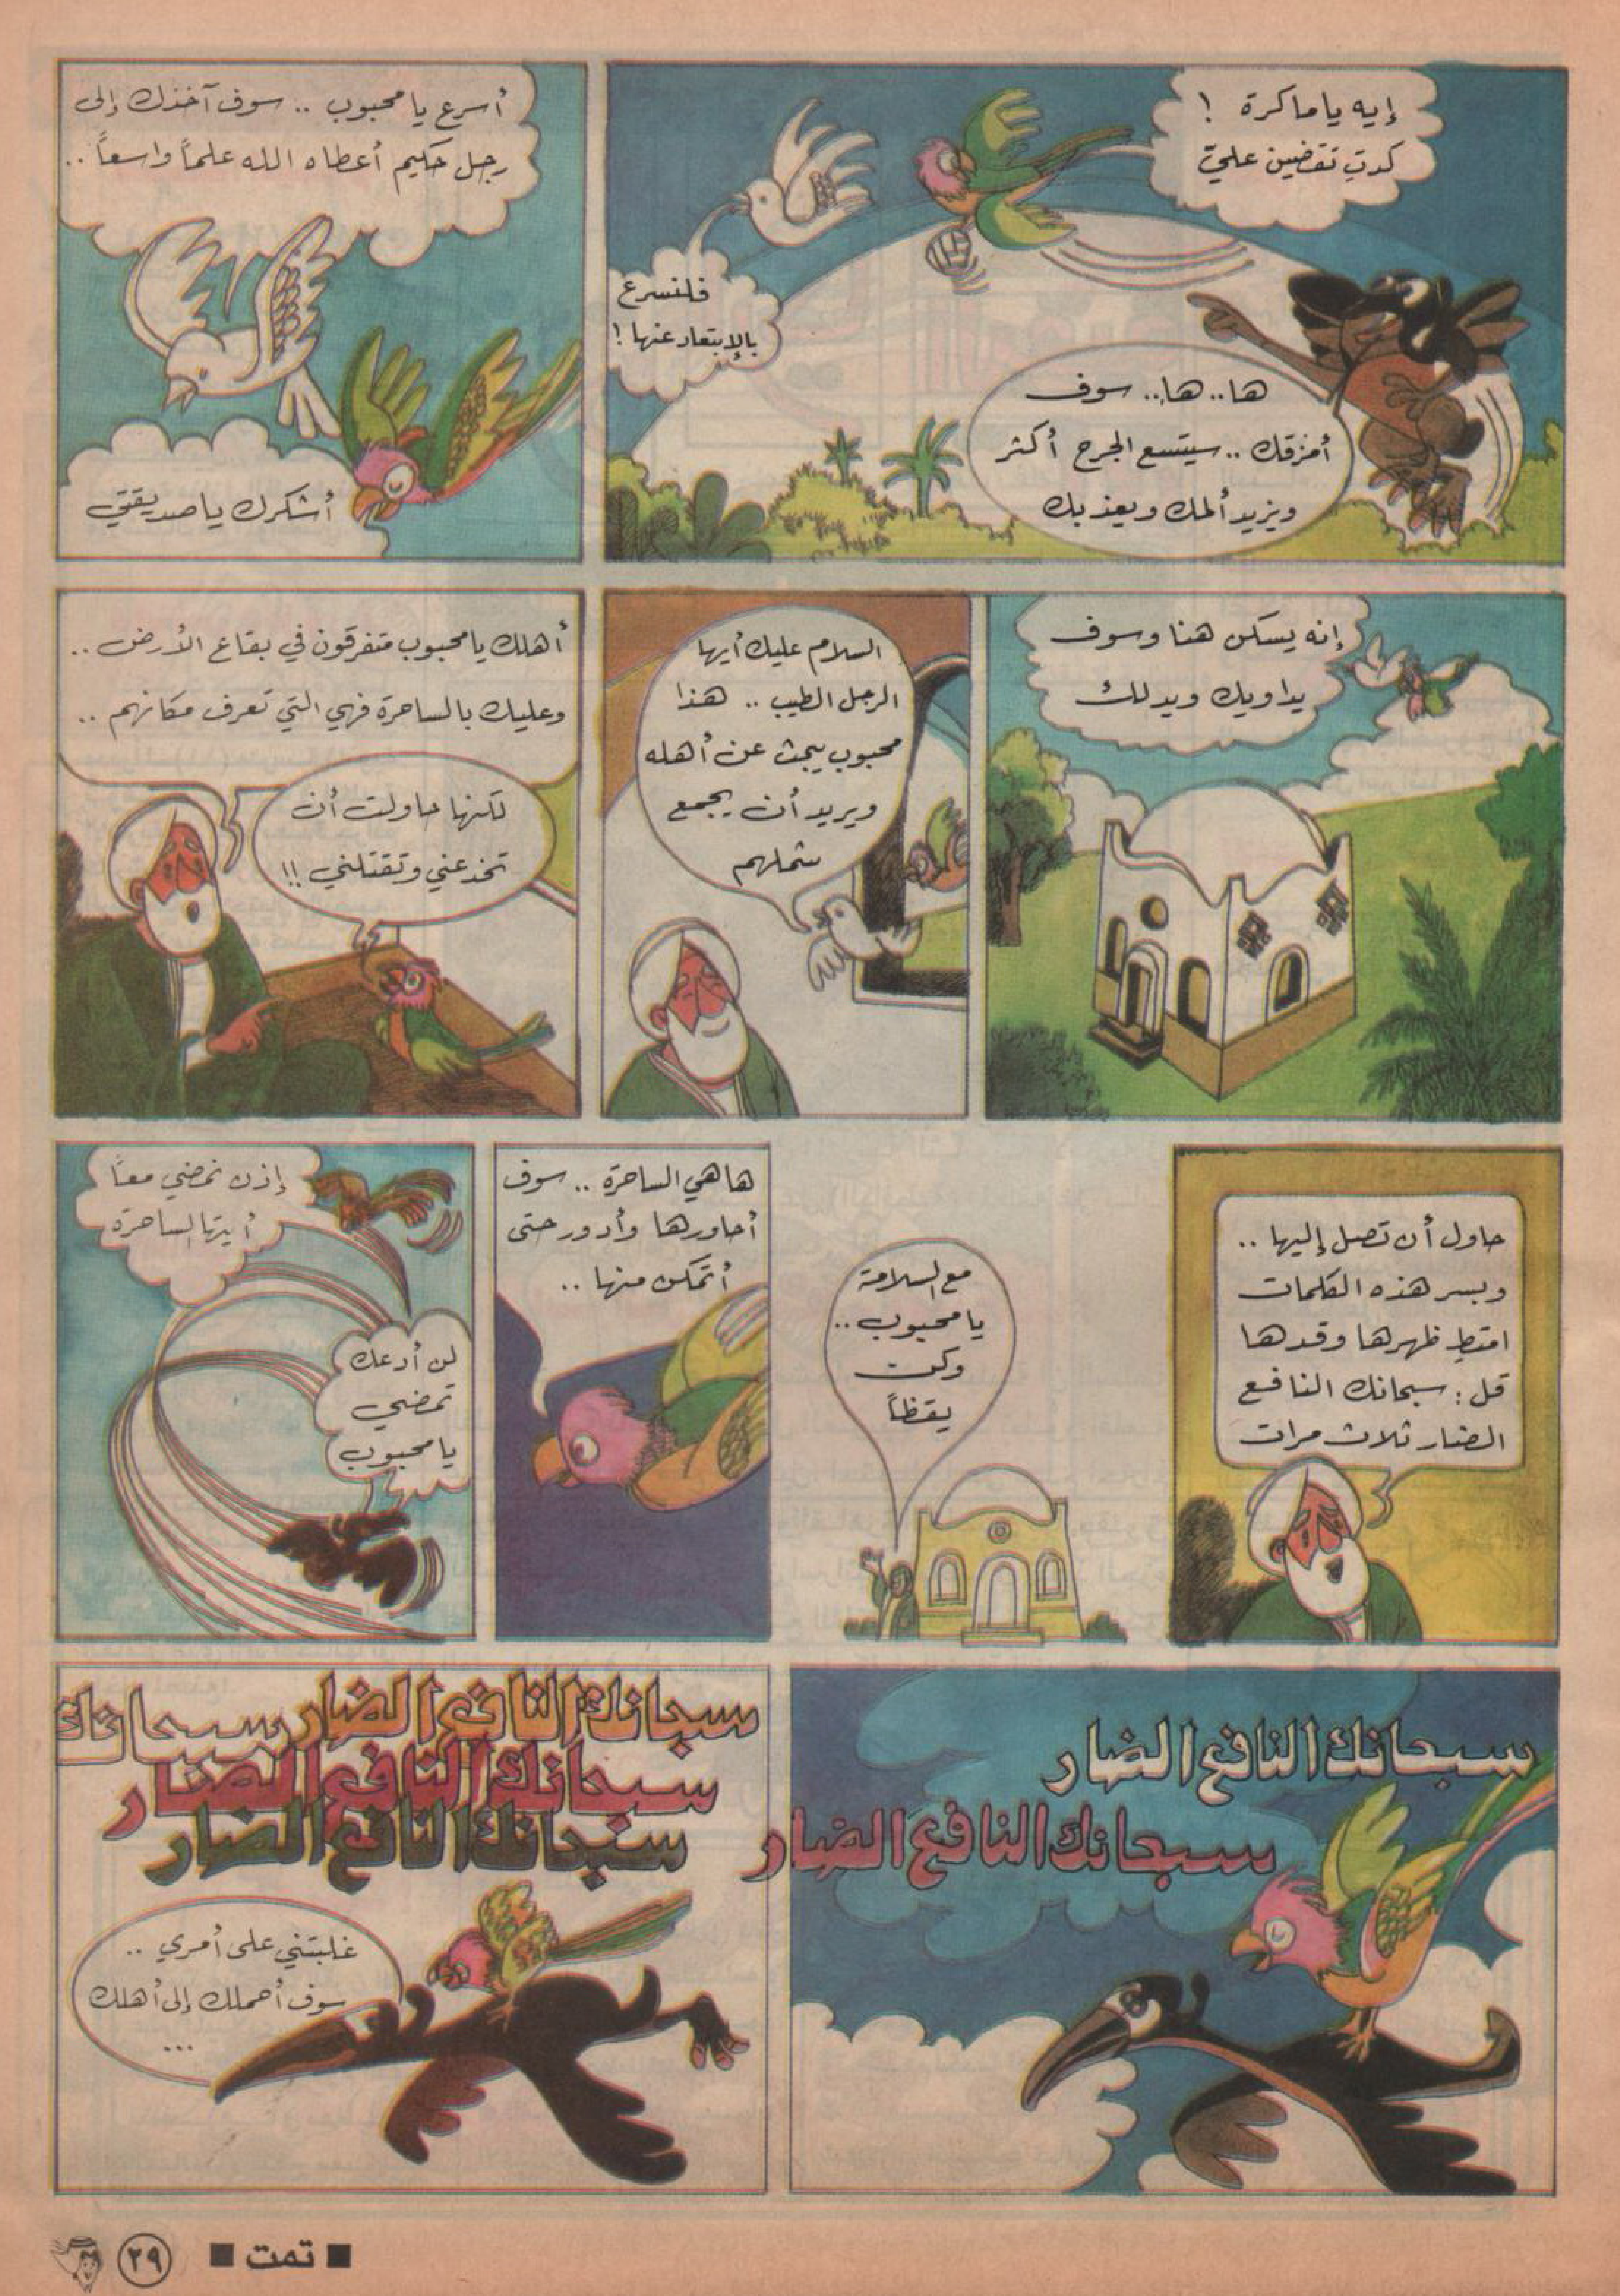 إيه ياماكرة !
كدتِ تقضين عليّ
فلنسرع
بالإبتعاد عنها !
ها.. ها.. سوف
أمزقك .. سيتسع الجرح أكثر
ويزيد ألمك ويعذبك
أسرع يا محبوب .. سوف آخذك إلى
رجل حكيم أعطاه الله علماً واسعاً ..
أشكرك ياصديقتي
إنه يسكن هنا وسوف
يداويك ويدلك
السلام عليك أيها
الرجل الطيب .. هذا
محبوب يبحث عن أهله
ويريد أن يجمع
شملهم
أهلك يامحبوب متفرقون في بقاع الأرض ..
وعليك بالساحرة فهي التي تعرف مكانهم ..
لكنها حاولت أن
تخدعني وتقتلني !!
حاول أن تصل إليها ..
وبسر هذه الكلمات
امتطِ ظهرها وقدها
قل : سبحانك النافع
الضار ثلاث مرات
مع السلامة
يا محبوب ..
وكن
يقظاً
ها هي الساحرة .. سوف
أحاورها وأدور حتى
أتمكن منها ..
إذن نمضي معاً
أيتها الساحرة
لن أدعك
تمضي
يا محبوب
سبحانك النافع الضار
سبحانك النافع الضار
سبحانك النافع الضار سبحانك
سبحانك النافع الضار
سبحانك النافع الضار
غلبتني على أمري ..
سوف أحملك إلى أهلك
...
■ تمت ■
٢٩